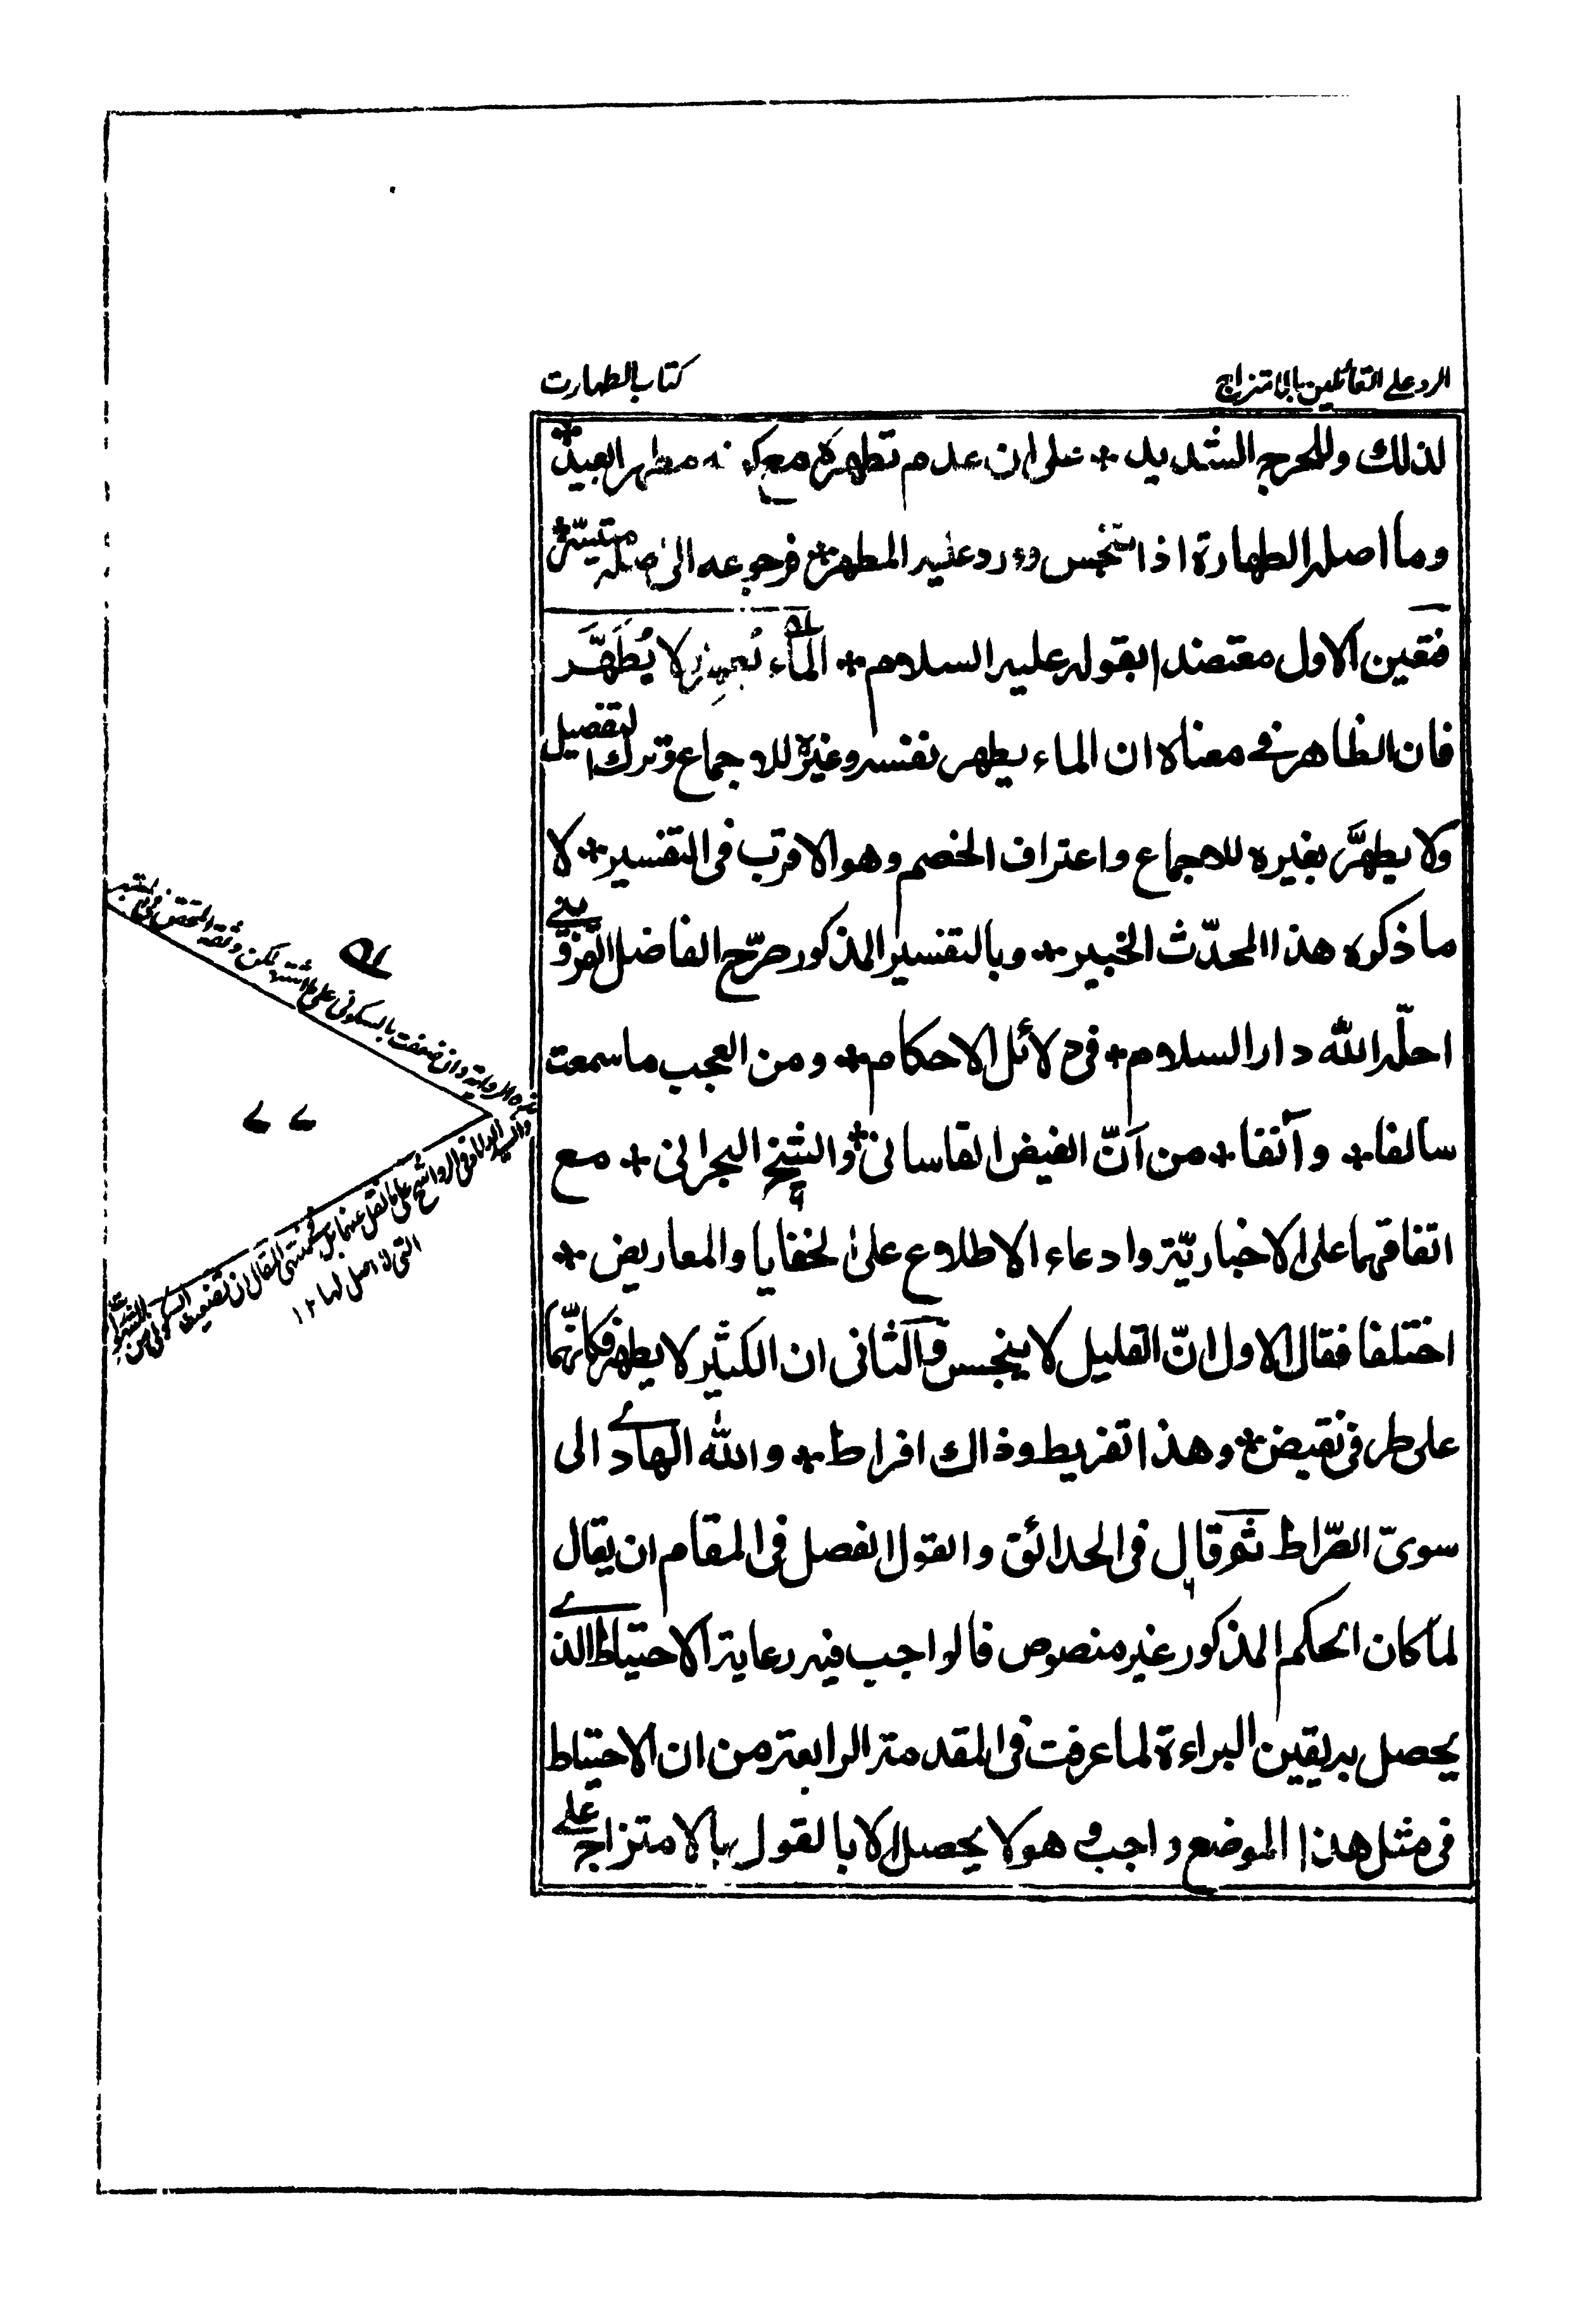 الرد علے القائلین بالامتزاج
کتاب الطهارت
لذلك وللحرج الشديد * على ان عدم تطهره مع كونه مطهرا بعيد *
وما اصله الطهارة اذا تنجس وورد عليه المطهر * فرجوعه الى اصله متيسّر *
فتعين الاول معتضدا بقوله عليه السلام * الماء يُطهِّر ولا يُطَهَّر
فان الظاهر في معناه ان الماء يطهر نفسه وغيره للاجماع وترك التفصيل
ولا يطهَّر بغيره للاجماع واعتراف الخصم وهو الاقرب في التفسير * لا
ما ذكره هذا المحدّث الخبير * وبالتفسير المذكور صرّح الفاضل القزوينے
احلّه الله دار السلام * في دلائل الاحكام * ومن العجب ما سمعت
سالفا * وآنفا * من أنّ الفيض القاساني * والشيخ البحراني * مع
اتفاقهما على الاخباريّة وادعاء الاطلاع على الخفايا والمعاريض *
اختلفا فقال الاول انّ القليل لا ينجس والثاني ان الكثير لا يطهر فكانّهما
على طرفي نقيض * وهذا تفريط وذاك افراط * والله الهادے الى
سوىّ الصّراط ثم قال في الحدائق والقول الفصل في المقام ان يقال
لما كان الحكم المذكور غير منصوص فالواجب فيه رعاية الاحتياط الذے
يحصل به يقين البراءة لما عرفت في المقدمة الرابعة من ان الاحتياط
في مثل هذا الموضع واجب وهو لا يحصل الا بالقول بالامتزاج علے
هذه الرواية وان ضعفت بالسكوني على ما اشتهر لكن وثقه المحقق في المعتبر
والسيد الداماد في الرواشح على ما نقل عنهما بل في منتهى المقال ان تضعيف السكوني من المشهورات
التي لا اصل لها ١٢